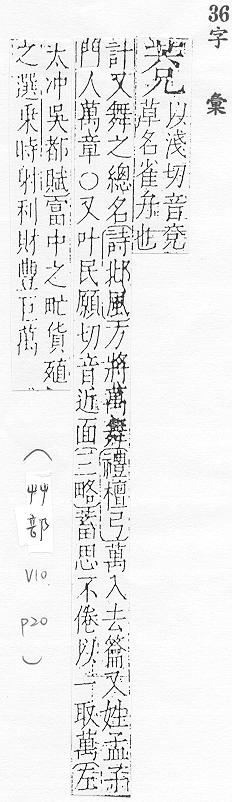 36字 彙
以淺切音兗
草名雀弁也
計又舞之總名詩邶風方將萬舞禮檀弓萬入去籥又姓孟子
門人萬章○又叶民願切音近面三略蓄思不倦以一取萬左
太冲吳都賦富中之甿貨殖
之選乘時射利財豐巨萬
(艸部 V10 P20)